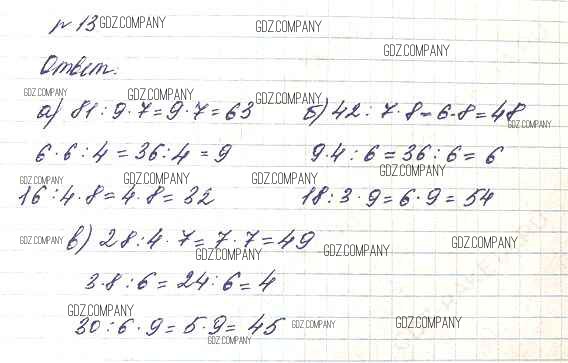 № 13 GDZ.COMPANY GDZ.COMPANY
GDZ.COMPANY
Ответ:
GDZ.COMPANY GDZ.COMPANY GDZ.COMPANY
а) 81 : 9 · 7 = 9 · 7 = 63 б) 42 : 7 · 8 = 6 · 8 = 48
GDZ.COMPANY
6 · 6 : 4 = 36 : 4 = 9 9 · 4 : 6 = 36 : 6 = 6
GDZ.COMPANY GDZ.COMPANY GDZ.COMPANY GDZ.COMPANY
16 : 4 · 8 = 4 · 8 = 32 18 : 3 · 9 = 6 · 9 = 54
GDZ.COMPANY в) 28 : 4 · 7 = 7 · 7 = 49 GDZ.COMPANY
GDZ.COMPANY GDZ.COMPANY
3 · 8 : 6 = 24 : 6 = 4
GDZ.COMPANY
30 : 6 · 9 = 5 · 9 = 45 GDZ.COMPANY GDZ.COMPANY
GDZ.COMPANY